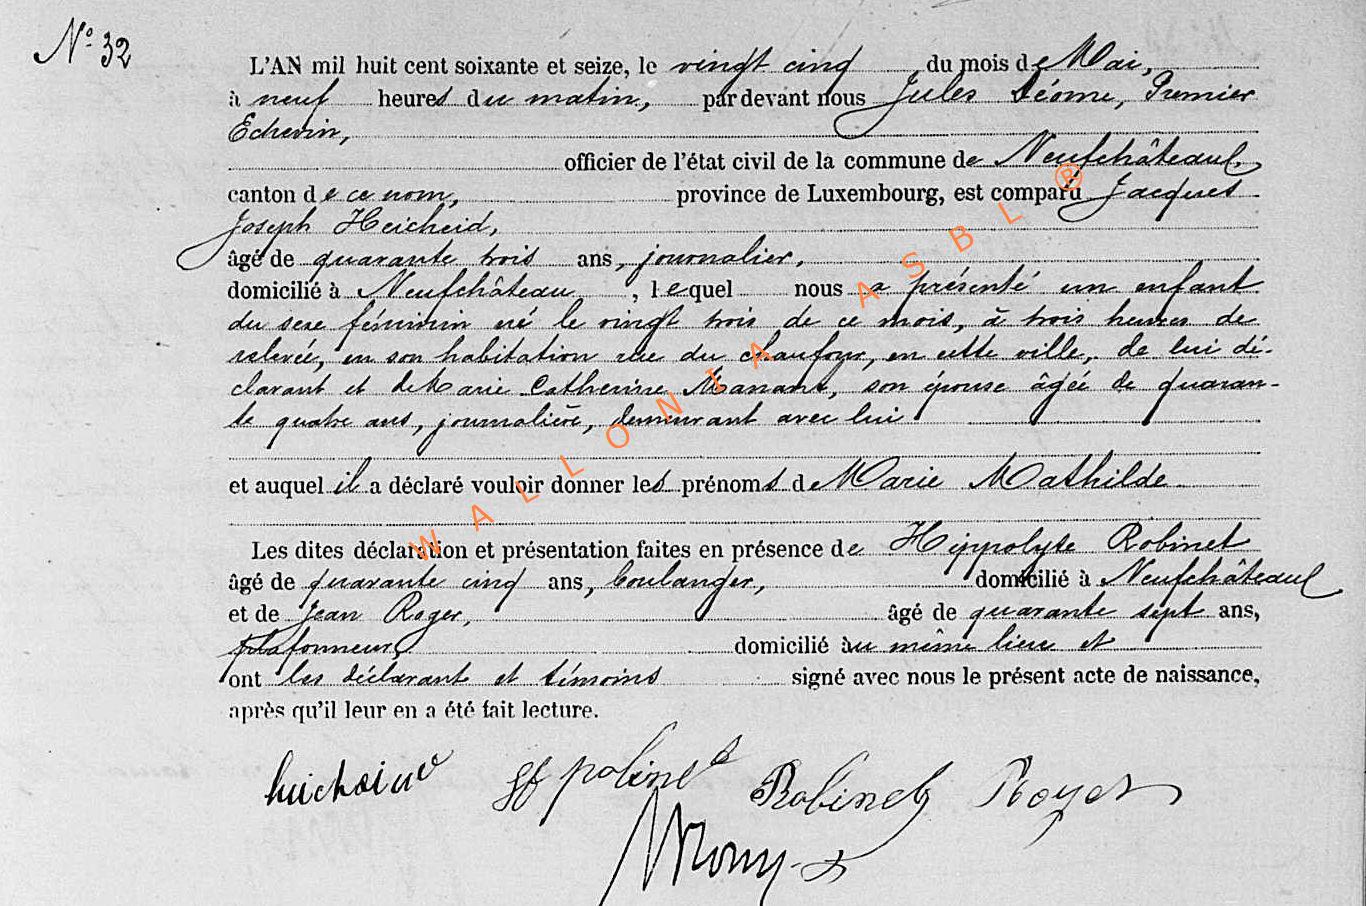 N° 32
L'AN mil huit cent soixante et seize, le vingt cinq du mois de Mai,
à neuf heures du matin, par devant nous Jules Déome, Premier
Echevin,
officier de l'état civil de la commune de Neufchâteau,
canton de ce nom, province de Luxembourg, est comparu Jacques
Joseph Heicheid,
âgé de quarante trois ans, journalier,
domicilié à Neufchâteau, lequel nous a présenté un enfant
du sexe féminin né le vingt trois de ce mois, à trois heures de
relevée, en son habitation rue du chaufour, en cette ville, de lui dé-
clarant et de Marie Catherine Manant, son épouse âgée de quaran-
te quatre ans, journalière, demeurant avec lui
et auquel il a déclaré vouloir donner les prénoms de Marie Mathilde
Les dites déclaration et présentation faites en présence de Hippolyte Robinet
âgé de quarante cinq ans, boulanger, domicilié à Neufchâteau
et de Jean Roger, âgé de quarante sept ans,
plafonneur, domicilié au même lieu et
ont les déclarant et témoins signé avec nous le présent acte de naissance,
après qu'il leur en a été fait lecture.
Robinet
WALLONIA ASBL ®